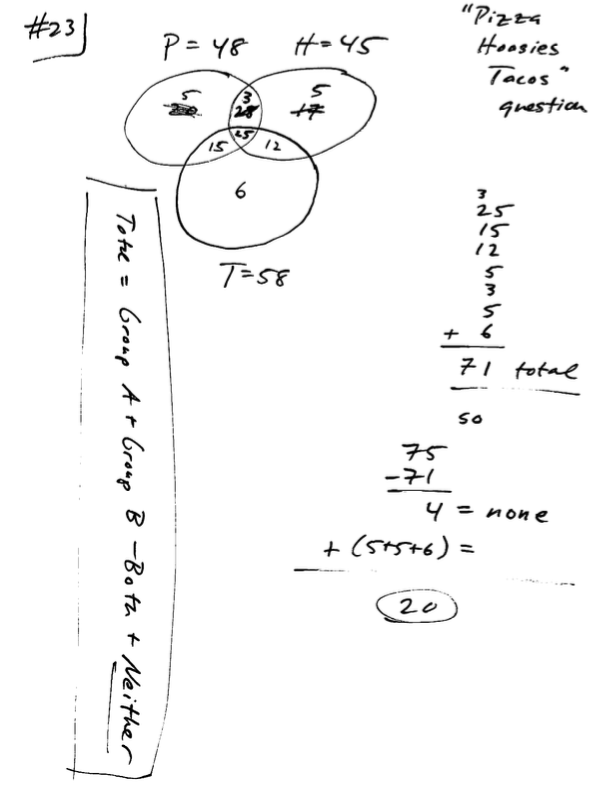 #23
"Pizza
Hoosies
Tacos"
question
P = 48 H = 45
5 3 5
28 17
25
15 12
6
T = 58
3
25
15
12
5
3
5
+ 6
71 total
so
75
-71
4 = none
+ (5+5+6) =
20
Total = Group A + Group B - Both + Neither